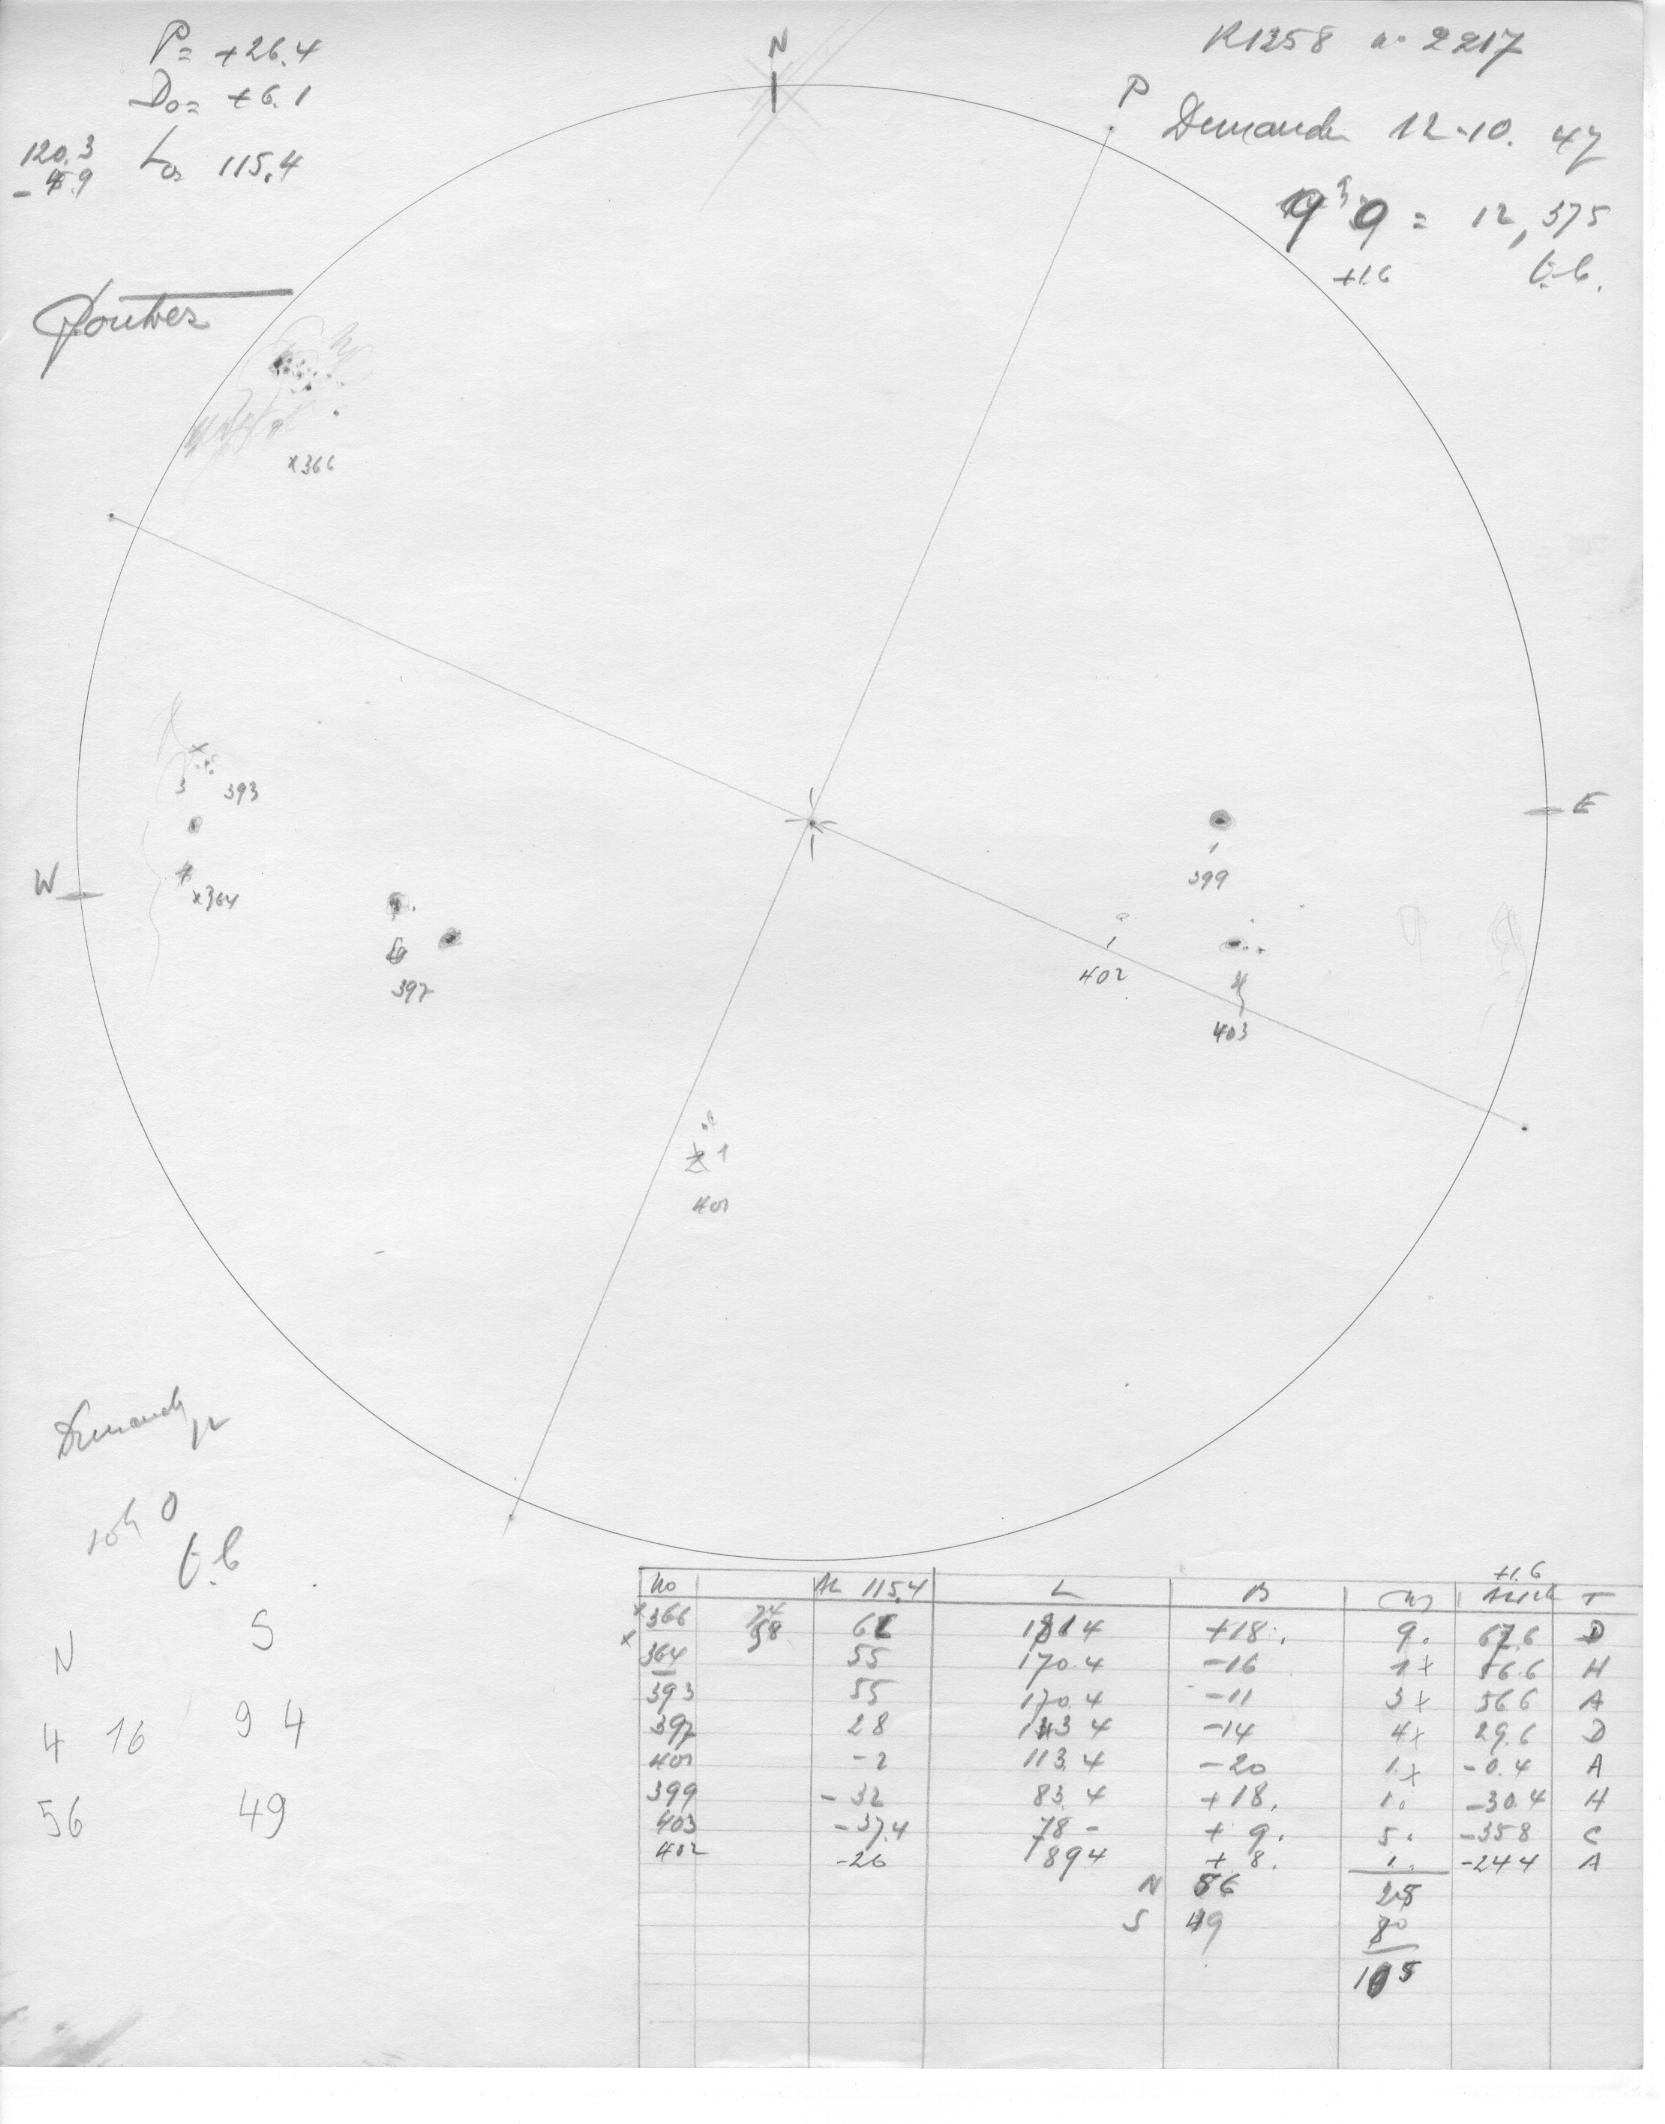 P= +26.4
Do= +6.1
120.3
- 4.9
Lo= 115.4
N
R1258 n° 2217
P
12-10. 47
= 12,375
+1.6
t.b.
x366
3 393
W
x364
397
E
1
399
402
403
1
401
10h
t.b
N S
4 16 9 4
56 49
+1.6
No ΔL 115.4 L B T
x 366 74 58 +18. 9. 67.6 D
x 364 55 170.4 -16 1x 56.6 H
393 55 170.4 -11 3x 56.6 A
397 28 143.4 -14 4x 29.6 D
401 -2 113.4 -20 1.x -0.4 A
399 -32 83.4 +18. 1. -30.4 H
403 -37.4 78- + 9. 5. -35.8 C
402 -26 89.4 + 8. 1. -24.4 A
N 56 25
S 49 80
105